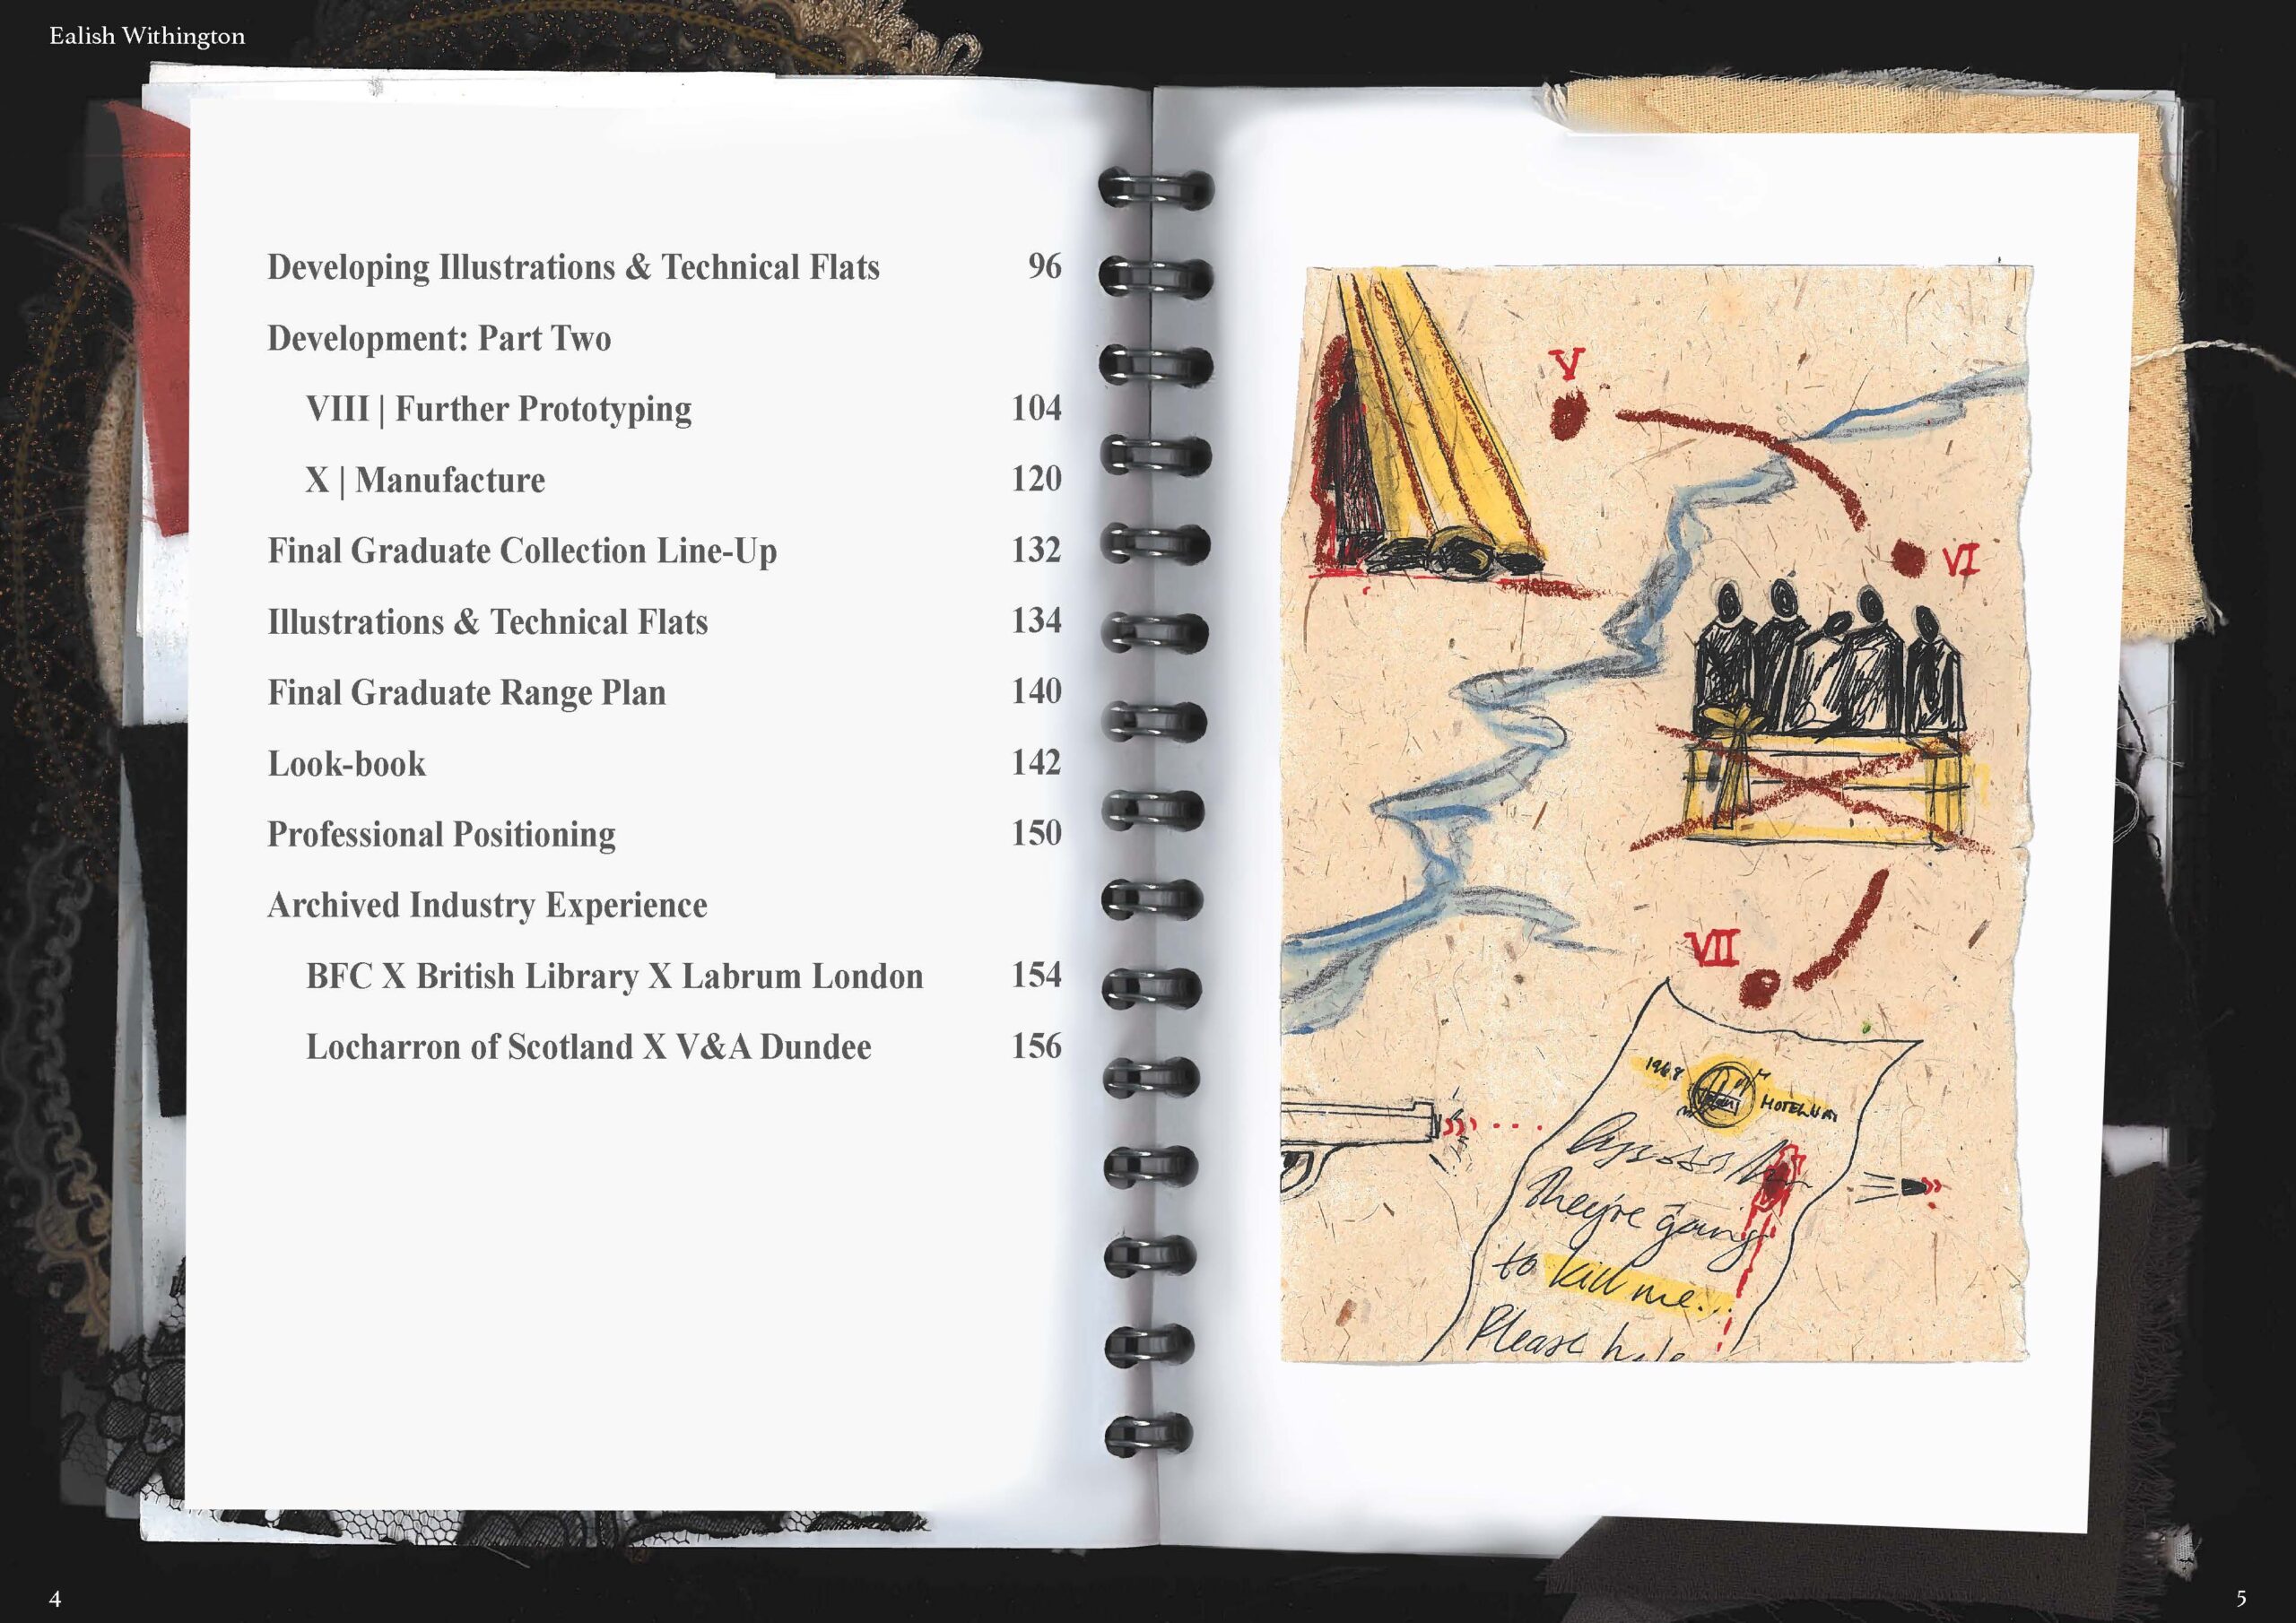 Ealish Withington
Developing Illustrations & Technical Flats 96
Development: Part Two
VIII | Further Prototyping 104
X | Manufacture 120
Final Graduate Collection Line-Up 132
Illustrations & Technical Flats 134
Final Graduate Range Plan 140
Look-book 142
Professional Positioning 150
Archived Industry Experience
BFC X British Library X Labrum London 154
Locharron of Scotland X V&A Dundee 156
V
VI
VII
They're going
to kill me...
Please
4
5